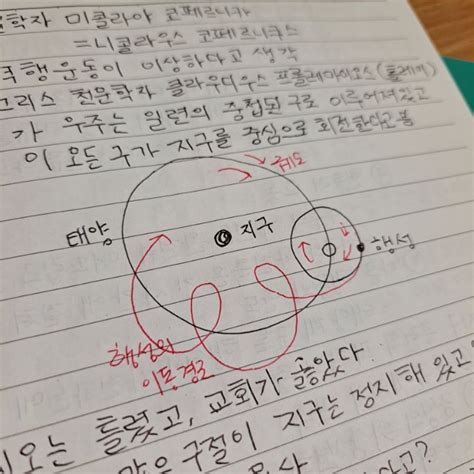 학자 미콜라이 코페르니카
=니콜라우스 코페르니쿠스
역행운동이 이상하다고 생각
그리스 천문학자 클라우디우스 프톨레마이오스
가 우주는 일련의 중첩된 구로 이루어져있고
이 모든 구가 지구를 중심으로 회전한다고 봄
궤도
태양
지구
행성
행성의
이동경로
틀렸고, 교회가 옳았다.
구절이 지구는 정지해 있